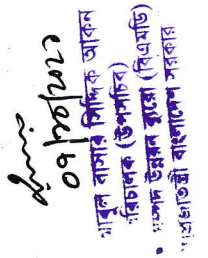 ০৭/১৮/২০২১
আবুল বাসার সিদ্দিক আকন
পরিচালক (উপসচিব)
সম্পদ উন্নয়ন ব্যুরো (বিএমডি)
গণপ্রজাতন্ত্রী বাংলাদেশ সরকার